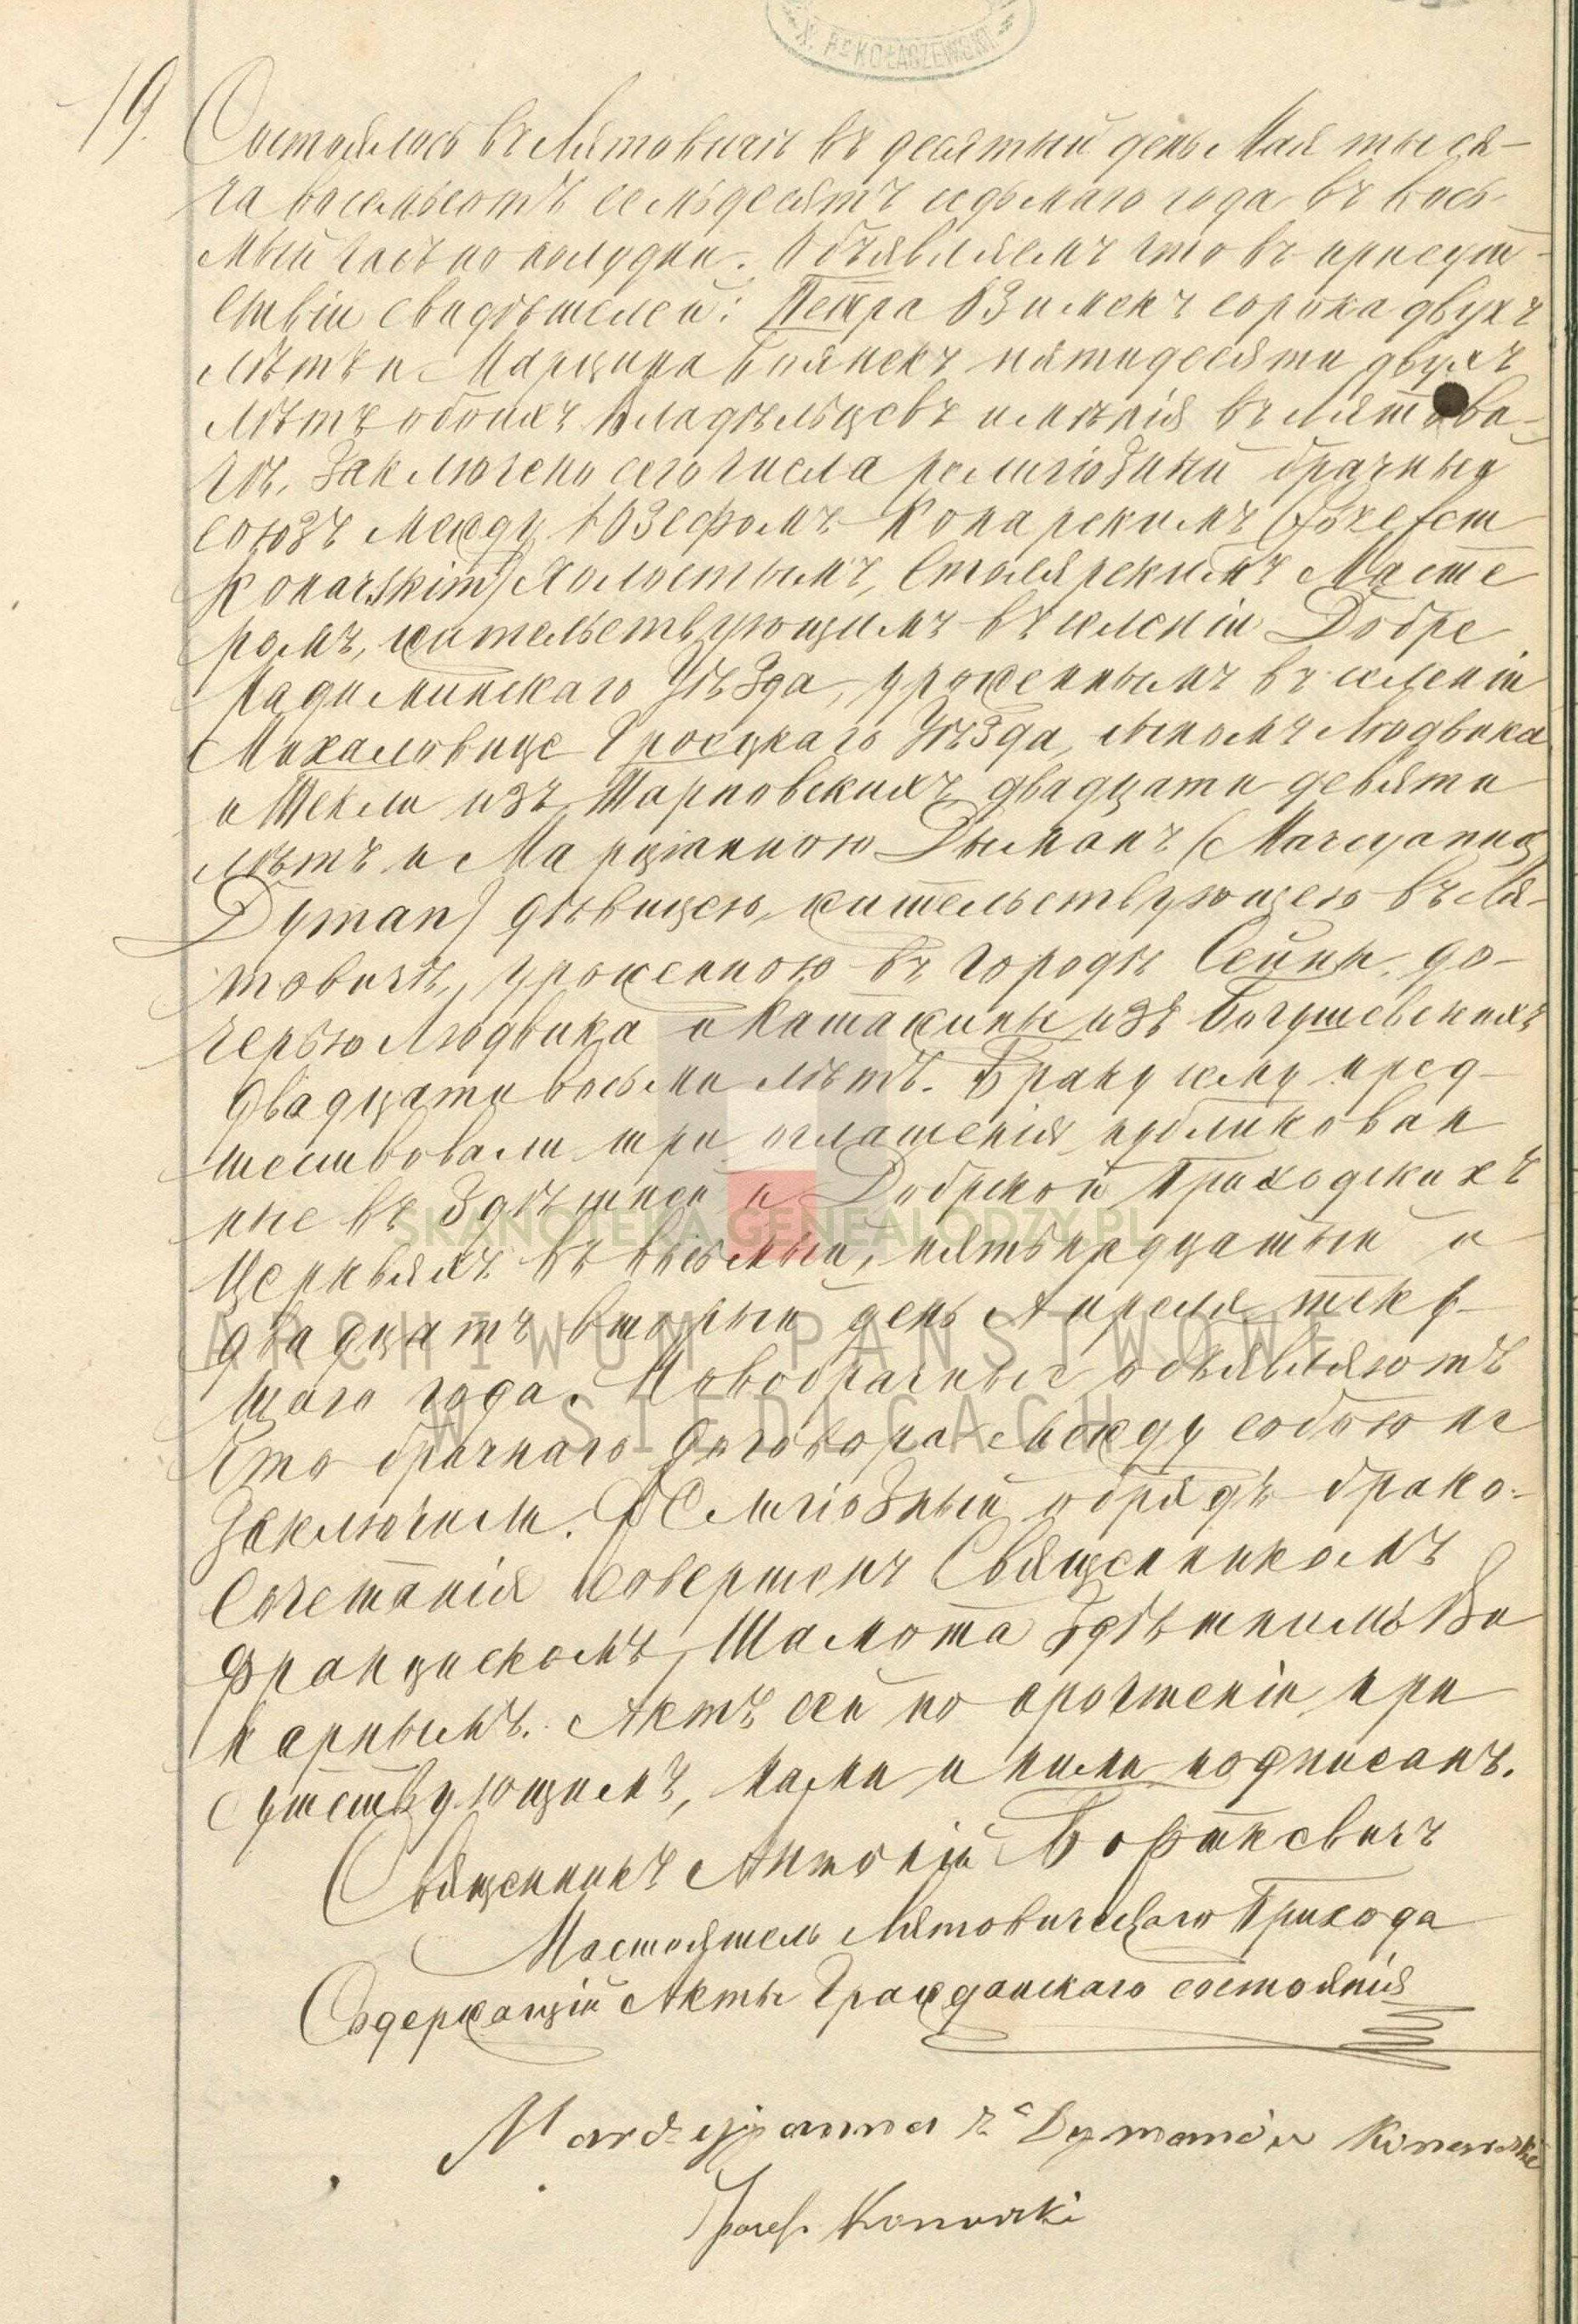 X. R. KOŁACZEWSKI
19.
Состоялось въ Лятовичѣ въ десятый день Мая тыся-
ча восемьсотъ семьдесятъ седьмаго года въ вось-
мый часъ по полудни. Объявляемъ что въ присут-
ствіи свидѣтелей: Петра сорока двухъ
лѣтъ и Марцина пятидесяти двухъ
лѣтъ обоихъ Владѣльцевъ имѣнія въ Лятови-
чѣ, Заключено сего числа религіозный брачный
союзъ между Юзефомъ Конарскимъ (Józefem
Konarskim) Холостымъ, Столярскимъ Масте
ромъ, жительствующимъ въ селеніи Добре
Радиминскаго Уѣзда, урожденнымъ въ селеніи
Михаловице Гроецкаго Уѣзда, сыномъ Людвика
и Текли изъ Тарновскихъ двадцати девяти
лѣтъ и Марціанною Дыманъ (Marcyanną
Dyman) дѣвицею, жительствующею въ Ля-
товичѣ, урожденною въ городѣ Сейны, до-
черью Людвика и Катажины изъ Богушевскихъ
двадцати восьми лѣтъ. Браку сему пред-
шествовали три оглашенія публикован
ные въ Здѣшней и Добрской Приходскихъ
Церквяхъ въ восьмый, пятьнадцатый и
двадцать вторый день Апреля теку-
щаго года. Новобрачные объявляютъ
что брачнаго договора между собою не
заключили. Религіозный обрядъ брако-
сочетанія совершенъ Священникомъ
Францискомъ Шамота Здѣшнимъ Ви
карнымъ. Актъ сей по прочтеніи при
сутствующимъ, нами и ними подписанъ.
Священникъ Антоній
Настоятель Лятовичскаго Прихода
Содержащій Акты Гражданскаго состоянія
Marcyjanna z Dymanów Konarska
Józef Konarski
SKANOTEKA.GENEALODZY.PL
ARCHIWUM PAŃSTWOWE
W SIEDLCACH